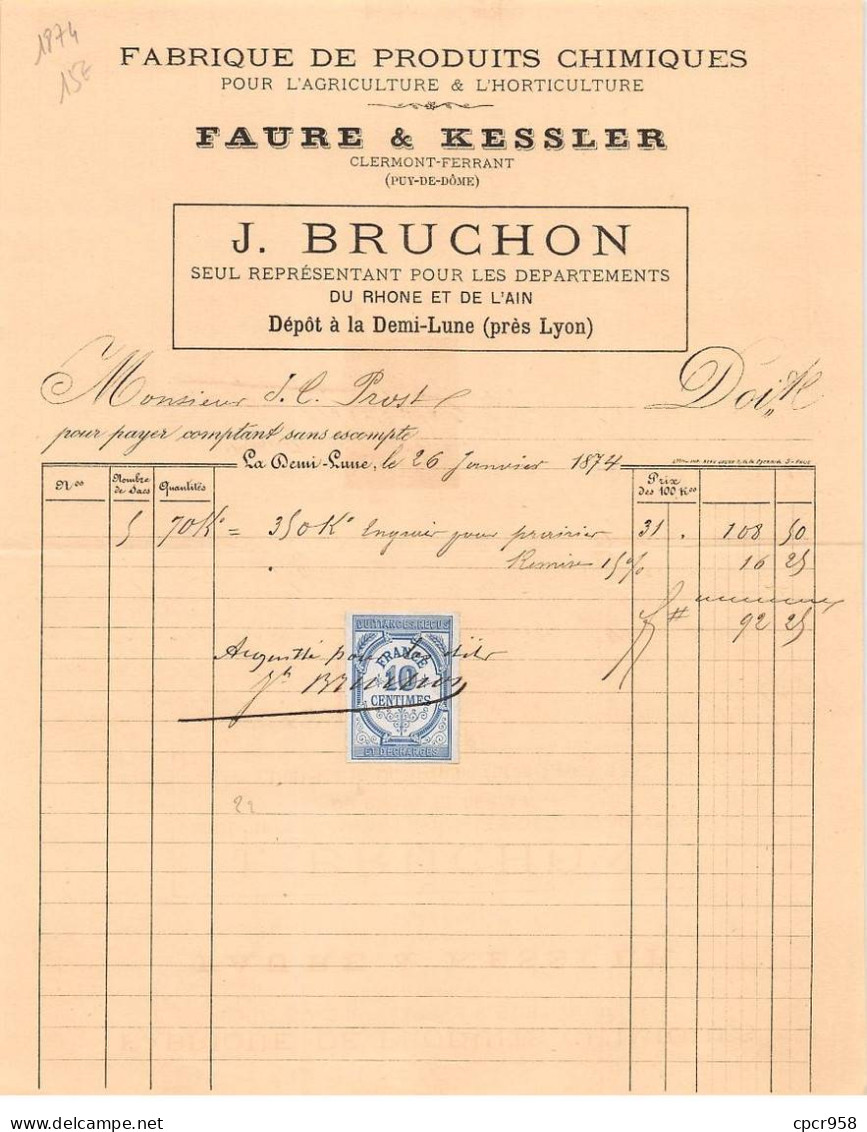 1874
15€
FABRIQUE DE PRODUITS CHIMIQUES
POUR L'AGRICULTURE & L'HORTICULTURE
FAURE & KESSLER
CLERMONT-FERRANT
(PUY-DE-DÔME)
J. BRUCHON
SEUL REPRÉSENTANT POUR LES DEPARTEMENTS
DU RHONE ET DE L'AIN
Dépôt à la Demi-Lune (près Lyon)
Monsieur J. C. Prost Doit
pour payer comptant sans escompte
La Demi-Lune, le 26 Janvier 1874
Nos Nombre de Sacs Quantités Prix des 100 Kos
5 70 Ko = 350 Ko Engrais pour prairies 31 " 108 50
Remise 15 % 16 25
92 25
QUITTANCES REÇUS
FRANCE
10
CENTIMES
ET DÉCHARGES
Acquitté pour
Jh Bruchon
22
delcampe.net
cpcr958